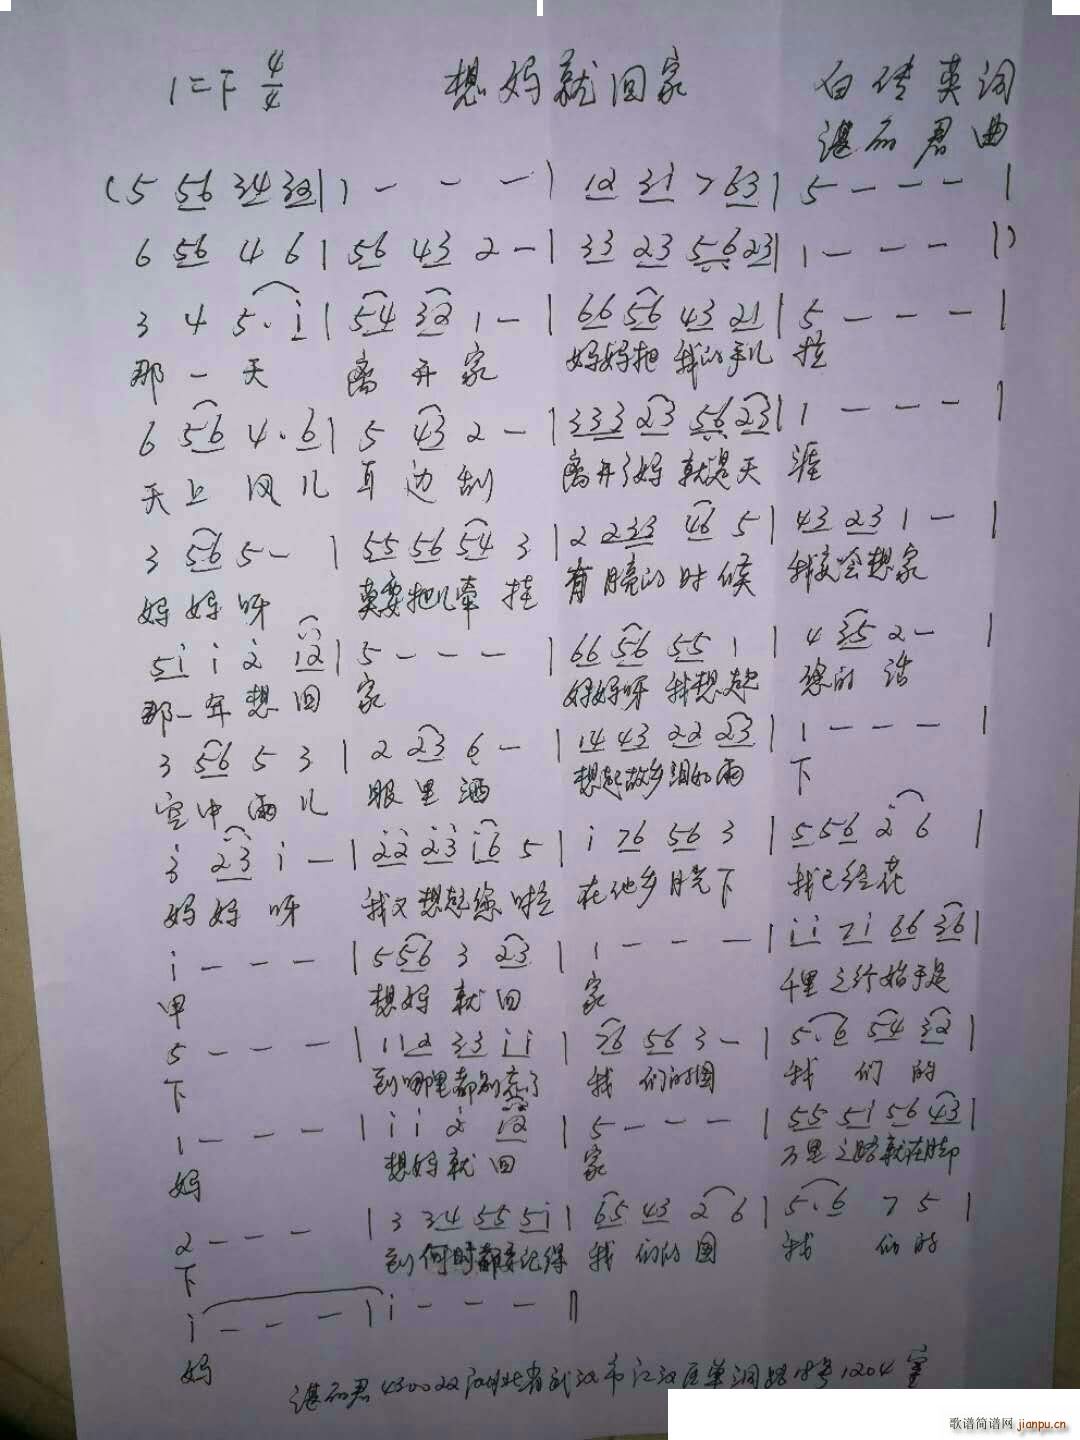 1=F 4/4 想妈就回家 白传英词
谌丽君曲
(5 56 34 32 | 1 - - - | 12 31 7 63 | 5 - - - |
6 56 4 6 | 56 43 2 - | 33 23 56 23 | 1 - - - |)
3 4 5. i | 54 32 1 - | 66 56 43 21 | 5 - - - |
那 一 天 离 开 家 妈妈把 我的手儿 拉
6 56 4. 6 | 5 43 2 - | 333 23 56 23 | 1 - - - |
天上 风儿 耳边刮 离开了妈 就是天 涯
3 56 5 - | 55 56 54 3 | 2 233 46 5 | 43 23 1 - |
妈妈呀 莫要把儿牵挂 有月亮的时候 我会想家
5i i 2 i2 | 5 - - - | 66 56 55 1 | 4 35 2 - |
那一年想回 家 妈妈呀 我想起 您的话
3 56 5 3 | 2 23 6 - | 14 43 22 23 | 1 - - - |
空中雨儿 眼里洒 想起故乡 的雨 下
3 23 i - | 22 23 i6 5 | i 76 56 3 | 5 56 2 6 |
妈妈呀 我又想起您 在他乡月光下 我已经花
i - - - | 5 56 3 23 | 1 - - - | ii 7i 66 36 |
甲 想妈就回 家 千里之行始于足
5 - - - | 1 12 33 ii | 76 56 3 - | 5. 6 54 32 |
下 到哪里都别忘了 我们的国 我们的
1 - - - | i i 2 i2 | 5 - - - | 55 5i 56 43 |
妈 想妈就回 家 万里之路就在脚
2 - - - | 3 34 55 5i | 65 43 2 6 | 5. 6 7 5 |
下 到何时都要记得 我们的国 我们的
i - - - | i - - - ||
妈
谌丽君430022湖北省武汉市江汉区单洞路18号1204室
歌谱简谱网 jianpu.cn